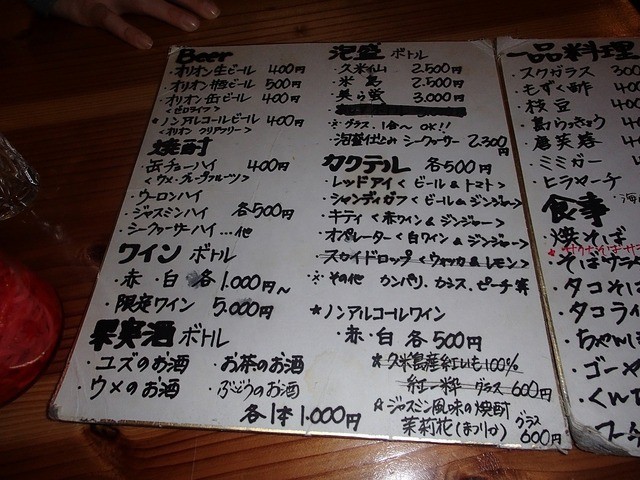 Beer
・オリオン生ビール 400円
・オリオン樽ビール 500円
・オリオン缶ビール 400円
<ゼロライフ>
★ノンアルコールビール 400円
<オリオン クリアフリー>
焼酎
・缶チューハイ 400円
<ウメ・グレープフルーツ>
・ウーロンハイ
・ジャスミンハイ 各500円
・シークヮーサーハイ…他
ワイン ボトル
・赤・白 各1.000円~
・限定ワイン 5.000円
果実酒 ボトル
・ユズのお酒 ・お茶のお酒
・ウメのお酒 ・ぶどうのお酒
各1本1.000円
泡盛 ボトル
・久米仙 2.500円
・米島 2.500円
・美ら蛍 3.000円
※グラス、1合~OK!!
・泡盛仕込みシークヮーサー 2300円
カクテル 各500円
・レッドアイ<ビール&トマト>
・シャンディガフ<ビール&ジンジャー>
・キティ<赤ワイン&ジンジャー>
・オペレーター<白ワイン&ジンジャー>
・スカイドロップ<ウォッカ&レモン>
※その他 カンパリ、カシス、ピーチ等
★ノンアルコールワイン
・赤・白 各500円
☆久米島産紅いも100%
紅一粋 グラス 600円
☆ジャスミン風味の焼酎
茉莉花(まつりか) グラス 600円
一品料理
・スクガラス 300
・もずく酢 40
・枝豆
・島らっきょう
・ミミガー
・ヒラヤーチ
食事
・焼そば
・そば
・タコそば
・タコライ
・ちゃんぷ
・ゴーヤ